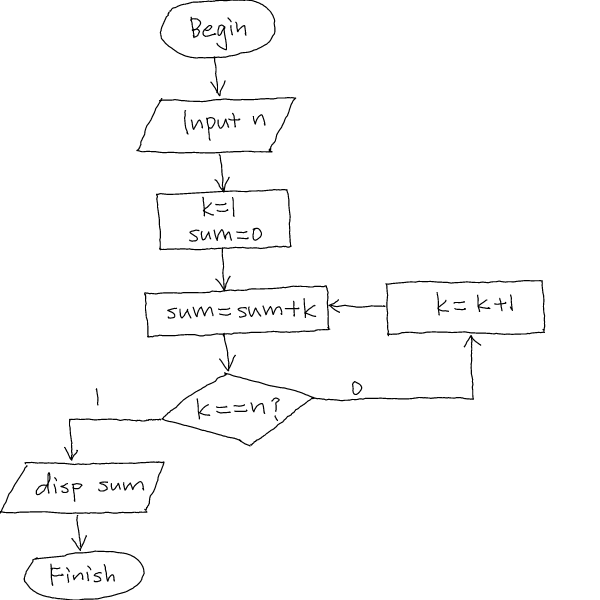 Begin
Input n
k=1
sum=0
sum=sum+k
k=k+1
k==n?
0
1
disp sum
Finish